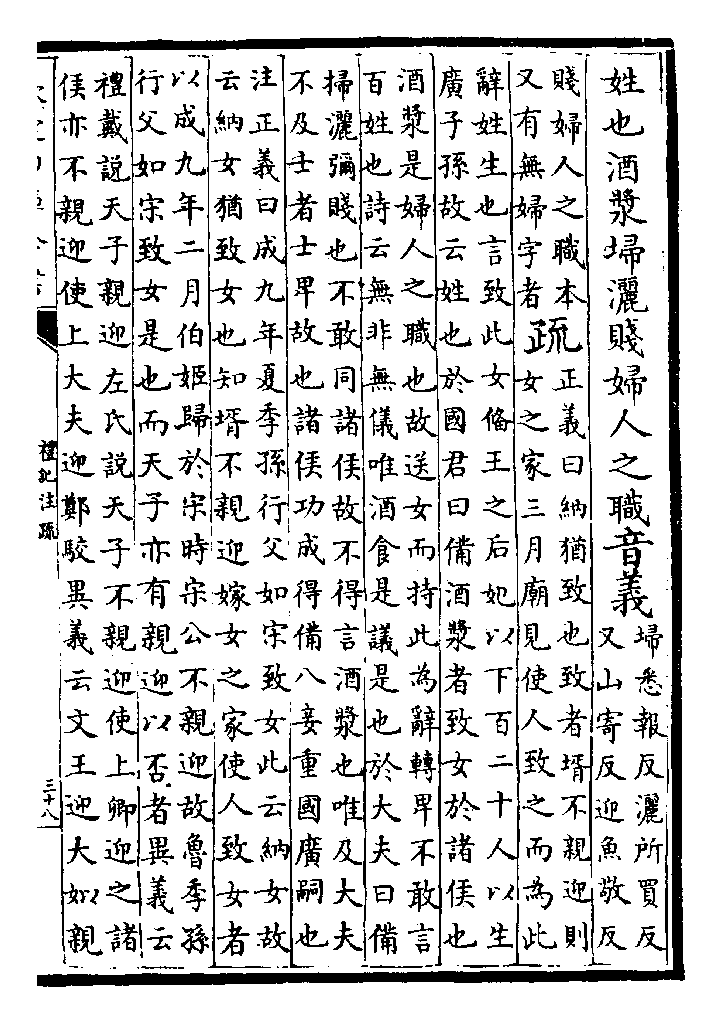 姓也酒漿埽灑賤婦人之職音義埽悉報反灑所買反
又山寄反迎魚敬反
賤婦人之職本
又有無婦字者疏正義曰納猶致也致者壻不親迎則
女之家三月廟見使人致之而為此
辭姓生也言致此女偹王之后妃以下百二十人以生
廣子孫故云姓也於國君曰備酒漿者致女於諸侯也
酒漿是婦人之職也故送女而持此為辭轉卑不敢言
百姓也詩云無非無儀唯酒食是議是也於大夫曰備
掃灑彌賤也不敢同諸侯故不得言酒漿也唯及大夫
不及士者士卑故也諸侯功成得備八妾重國廣嗣也
注正義曰成九年夏季孫行父如宋致女此云納女故
云納女猶致女也知壻不親迎嫁女之家使人致女者
以成九年二月伯姬歸於宋時宋公不親迎故魯季孫
行父如宋致女是也而天子亦有親迎以否者異義云
禮戴說天子親迎左氏說天子不親迎使上卿迎之諸
侯亦不親迎使上大夫迎鄭駁異義云文王迎大姒親
禮記注疏
三十八